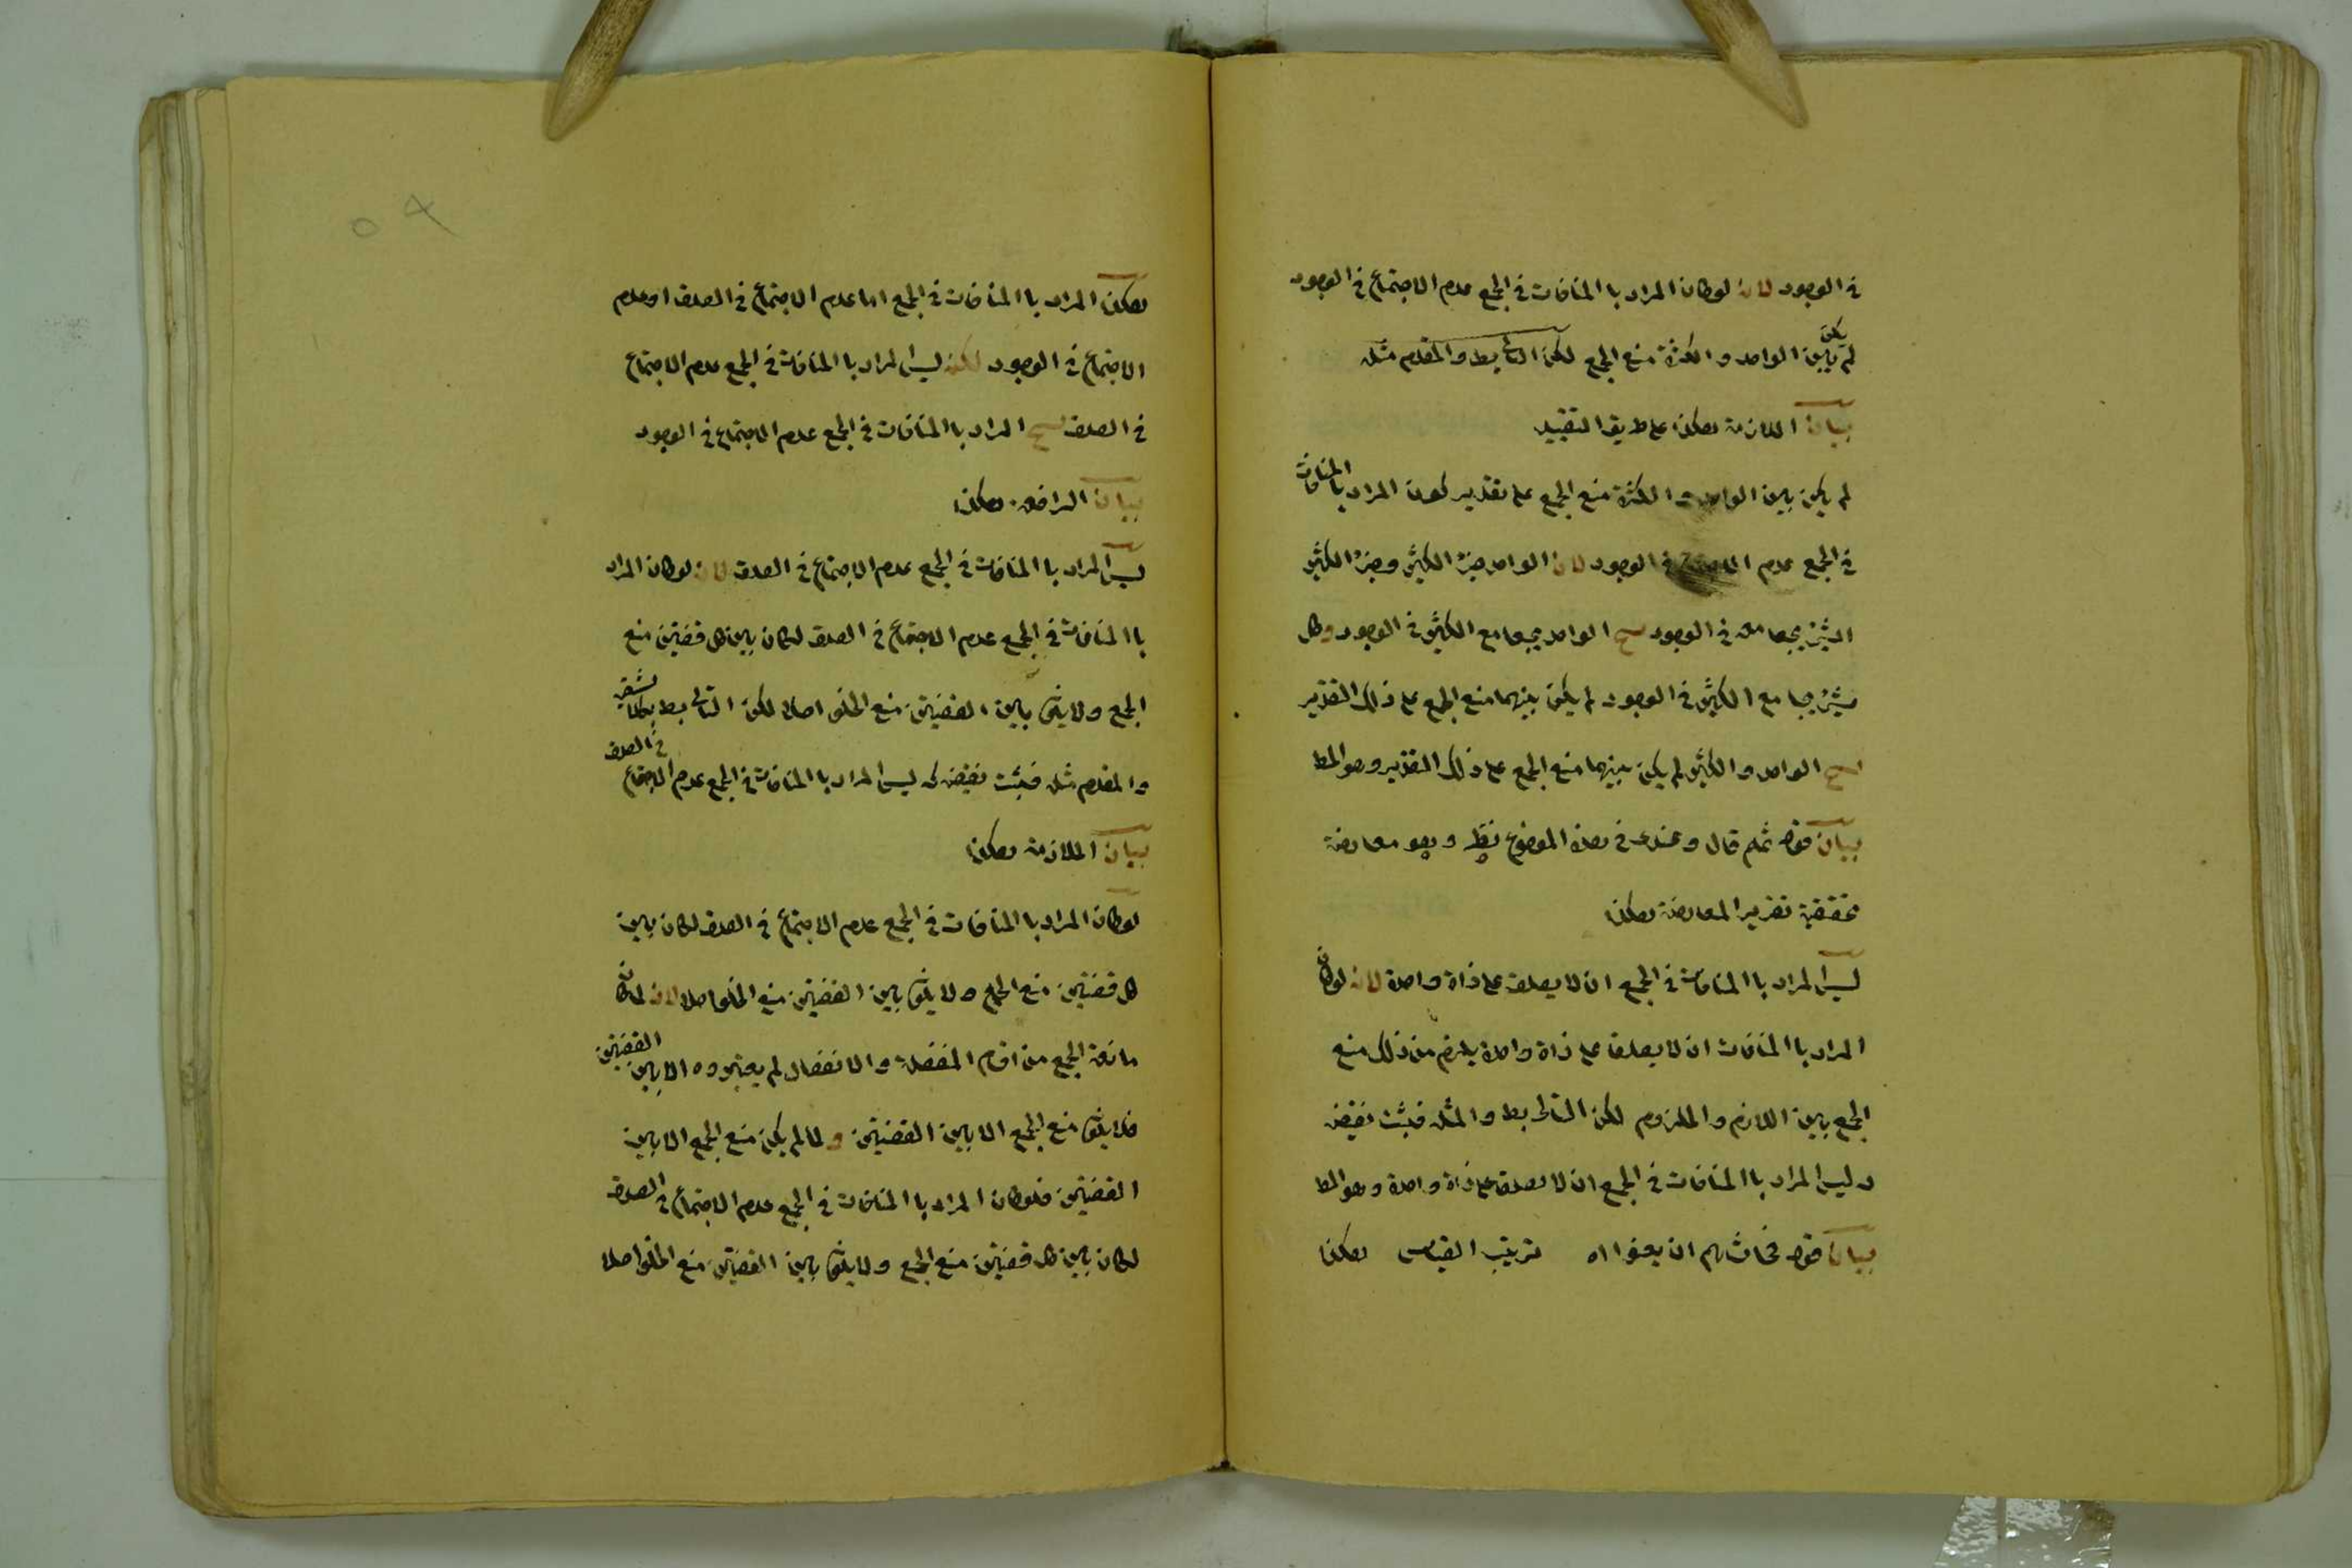 في الوجود لانه لو كان المراد با المنافات في الجمع عدم الاجتماع في الوجود
لم يكن بين الواحد والكثرة منع الجمع لكن التالي بط والمقدم مثله
بيان الملازمة هكذا على طريق التقييد
لم يكن بين الواحد والكثرة منع الجمع على تقدير كون المراد با المنافات
في الجمع عدم الاجتماع في الوجود لان الواحد جزء الكثير وجزء الكثير
يجامعه في الوجود ينتج الواحد يجامع الكثير في الوجود وكل
يجامع الكثير في الوجود لم يكن بينهما منع الجمع على ذلك التقدير
ينتج الواحد والكثير لم يكن بينهما منع الجمع على ذلك التقدير وهو المط
بيان قوله ثم قال وعندى في هذا الموضوع نظر وهو معارضة
تحقيقية تقرير المعارضة هكذا
ليس المراد با المنافات في الجمع ان لا يصدقا على ذاة واحدة لانه لو كان
المراد با المنافات ان لا يصدقا على ذاة واحدة يلزم من ذلك منع
الجمع بين اللازم والملزوم لكن التالي بط والمثله فثبت نقيضه
ليس المراد با المنافات في الجمع ان لا يصدقا على ذاة واحدة وهو المط
بيان قوله ان يعنوا اه ترتيب القياس هكذا
هكذا المراد با المنافات في الجمع اما عدم الاجتماع في الصدق او عدم
الاجتماع في الوجود لكنه ليس المراد با المنافات في الجمع عدم الاجتماع
في الصدق ينتج المراد با المنافات في الجمع عدم الاجتماع في الوجود
بيان الرافعة هكذا
ليس المراد با المنافات في الجمع عدم الاجتماع في الصدق لانه لو كان المراد
با المنافات في الجمع عدم الاجتماع في الصدق لكان بين كل قضيتين منع
الجمع ولا يبقى بين القضيتين منع الخلو اصلا لكن التالي بط بكلا شقيه
والمقدم مثله فثبت نقيضه كه ليس المراد با المنافات في الجمع عدم الاجتماع في الصدق
بيان الملازمة هكذا
لو كان المراد با المنافات في الجمع عدم الاجتماع في الصدق لكان بين
كل قضيتين منع الجمع ولا يبقى بين القضيتين منع الخلو اصلا لانه لما كان
مانعة الجمع من اقسام المنفصلة والانفصال لم يعتبروه الا بين القضيتين
فلا يبقى منع الجمع الا بين القضيتين ولما لم يكن منع الجمع الا بين
القضيتين فلو كان المراد با المنافات في الجمع عدم الاجتماع في الصدق
لكان بين كل قضيتين منع الجمع ولا يبقى بين القضيتين منع الخلو اصلا